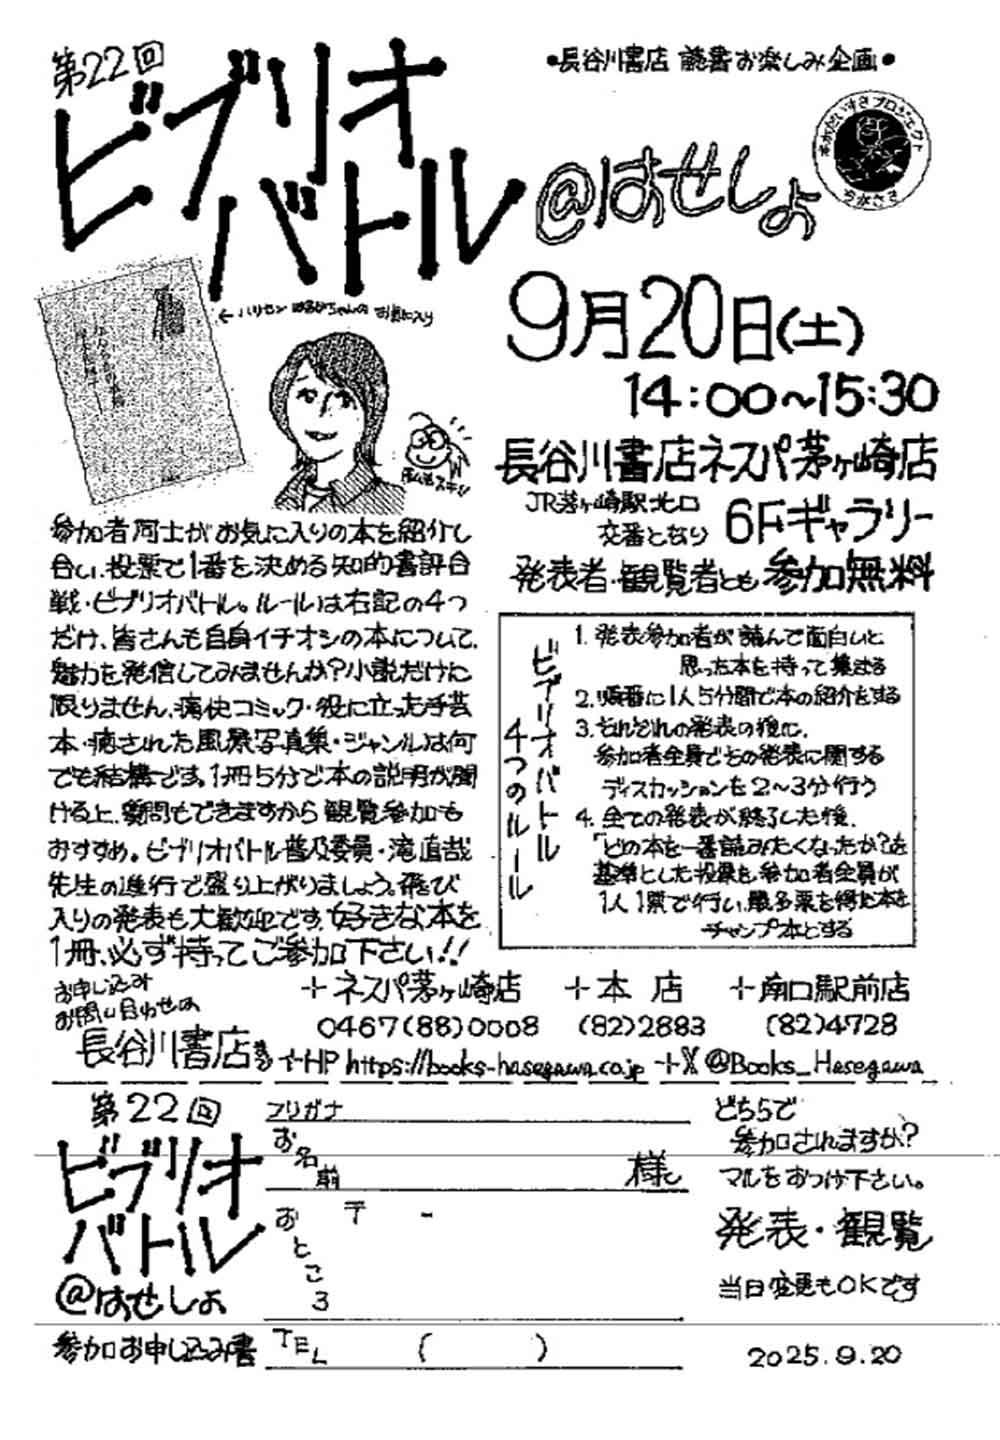 •長谷川書店 読書お楽しみ企画•
第22回
ビブリオ
バトル
@はせしょ
本がだいすきプロジェクト
ちがさき
←ハリセン はるかちゃんの お気に入り
9月20日(土)
14:00～15:30
長谷川書店ネスパ茅ヶ崎店
JR茅ヶ崎駅北口
交番となり
6Fギャラリー
発表者・観覧者とも 参加無料
参加者同士がお気に入りの本を紹介し
合い、投票で1番を決める知的書評合
戦・ビブリオバトル。ルールは右記の4つ
だけ、皆さんも自身イチオシの本について、
魅力を発信してみませんか?小説だけに
限りません、痛快コミック・役に立った手芸
本・癒された風景写真集・ジャンルは何
でも結構です。1冊5分で本の説明が聞
ける上、質問もできますから観覧参加も
おすすめ。ビブリオバトル普及委員・滝直哉
先生の進行で盛り上がりましょう。飛び
入りの発表も大歓迎です。好きな本を
1冊、必ず持ってご参加下さい!!
ビブリオバトル
4つのルール
1. 発表参加者が読んで面白いと
思った本を持って集まる
2. 順番に1人5分間で本の紹介をする
3. それぞれの発表の後に、
参加者全員でその発表に関する
ディスカッションを2～3分行う
4. 全ての発表が終了した後、
「どの本を一番読みたくなったか?」を
基準とした投票を参加者全員が
1人1票で行い、最多票を得た本を
チャンプ本とする
お申し込み
お問い合わせは
長谷川書店
+ネスパ茅ヶ崎店
0467(88)0008
+本店
(82)2883
+南口駅前店
(82)4728
+HP https://books-hasegawa.co.jp +X @Books_Hasegawa
第22回
ビブリオ
バトル
@はせしょ
参加お申し込み書
フリガナ
お名前 様
おところ 〒 -
TEL ( )
どちらで
参加されますか?
マルをおつけ下さい。
発表・観覧
当日変更もOKです
2025.9.20